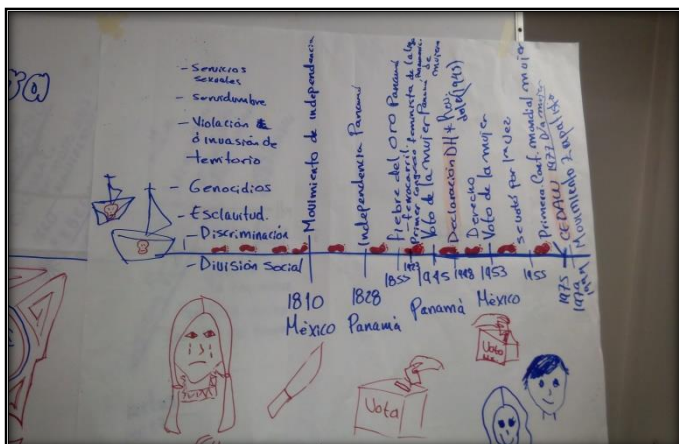 - Servicios
sexuales
- Servidumbre
- Violación
ó invasión de
territorio
- Genocidios
- Esclavitud.
- Discriminación
- División Social
Movimiento de independencia
Independencia Panamá
Fiebre del oro Panamá
- ferrocarril.
Primer Congreso feminista de la
Voto de la mujer Panamá
Declaración DH
(1945)
Derecho
Voto de la mujer
1a vez
Primera Conf. mundial mujer
CEDAW
Movimiento Zapatista
1810
México
1828
Panamá
1923
1945
Panamá
1948
1953
México
1955
1975
1979
Voto
Voto